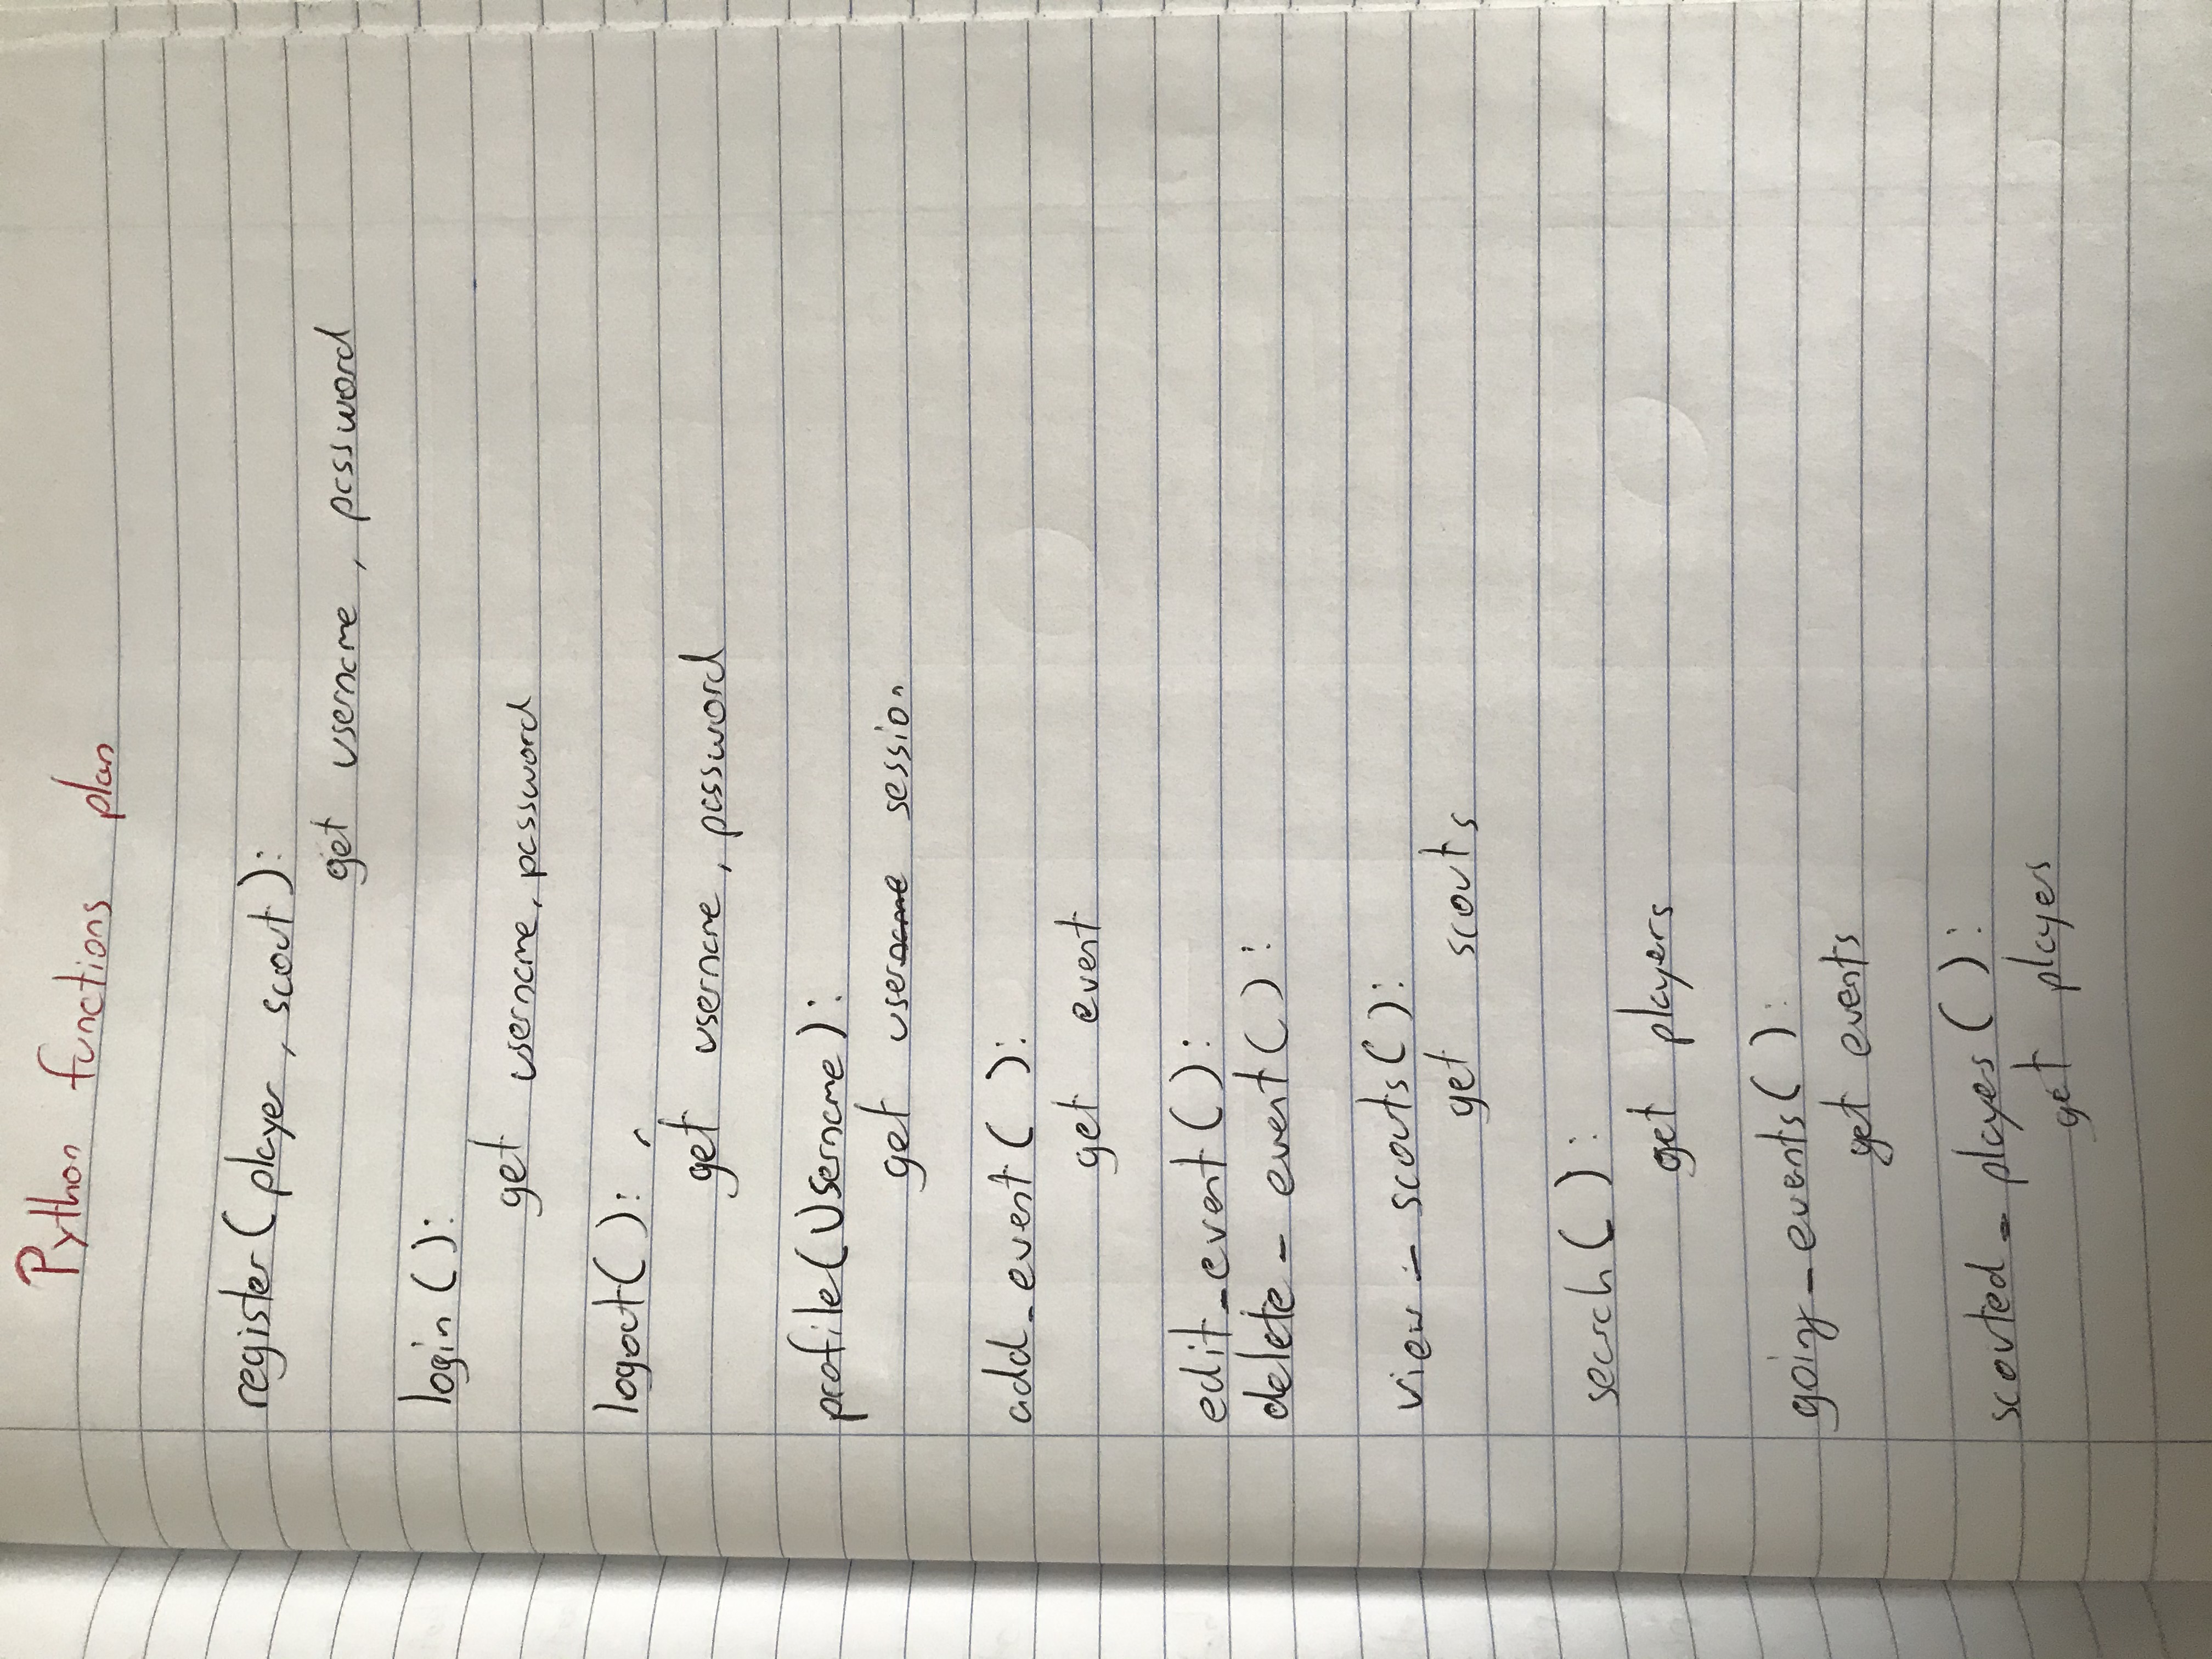 Python functions plan
register(player, scout):
get username, password
login():
get username, password
logout():
get username, password
profile(Username):
get username session
add_event():
get event
edit_event():
delete_event():
view_scouts():
get scouts
search():
get players
going_events():
get events
scouted_playes():
get players